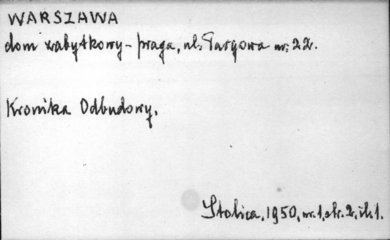 WARSZAWA
dom zabytkowy - praga, ul. Targowa nr. 22.
Kronika Odbudowy,
Stolica, 1950, nr. 1, str. 2, il. 1.